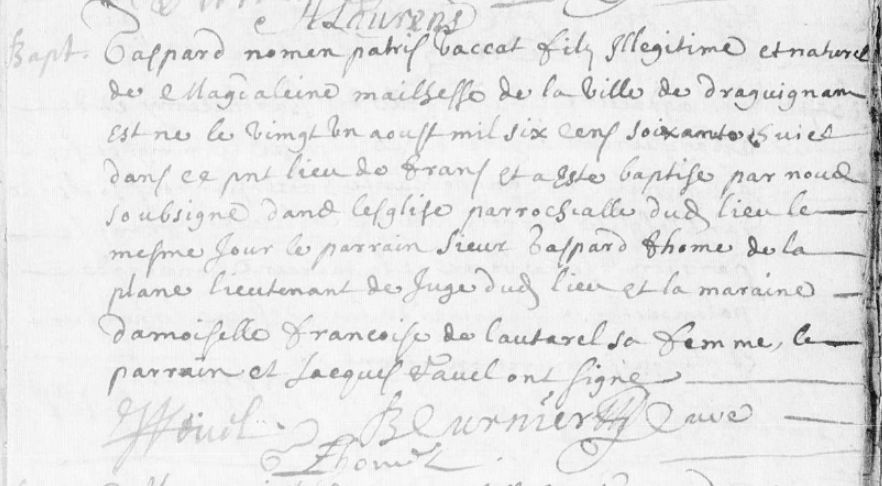 H Laurens
Bapt. Gaspard nomen patris vaccat filz Illegitime et naturel
de Magdaleine mailhesse de la Ville de draguignam
est ne le vingt vn aoust mil six cens soixante huict
dans ce pnt lieu de Trans et a este baptise par nous
soubsigne dans lesglise parrochialle dud lieu le
mesme Jour le parrain sieur Gaspard Thome de la
plane lieutenant de Juge dud lieu et la maraine
damoiselle francoise de lautarel sa femme, le
parrain et Jacques Tavel ont signe
B Curnier Cure
Thome